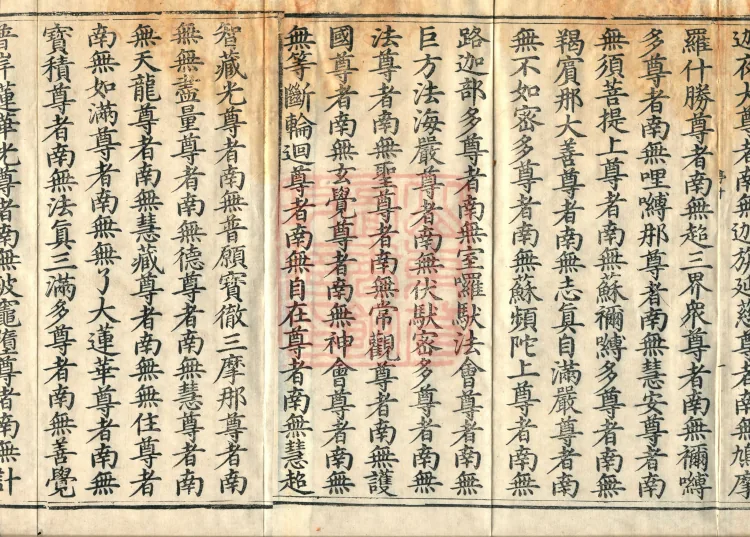 迦夜大尊者南無迦旃延慈尊者南無鳩摩
羅什勝尊者南無超三界衆尊者南無禰嚩
多尊者南無哩嚩那尊者南無慧安尊者南
無須菩提上尊者南無蘇禰嚩多尊者南無
羯賓那大善尊者南無志真自滿嚴尊者南
無不如密多尊者南無蘇頻陀上尊者南無
路迦部多尊者南無室羅馱法會尊者南無
巨方法海嚴尊者南無伏馱密多尊者南無
法尊者南無聖尊者南無常觀尊者南無護
國尊者南無玄覺尊者南無神會尊者南無
無等斷輪迴尊者南無自在尊者南無慧超
智藏光尊者南無普願寶徹三摩那尊者南
無無盡量尊者南無德尊者南無慧尊者南
無天龍尊者南無慧藏尊者南無無住尊者
南無如滿尊者南無無了大蓮華尊者南無
寶積尊者南無法真三滿多尊者南無善覺
普岸蓮華光尊者南無破竈墮尊者南無計